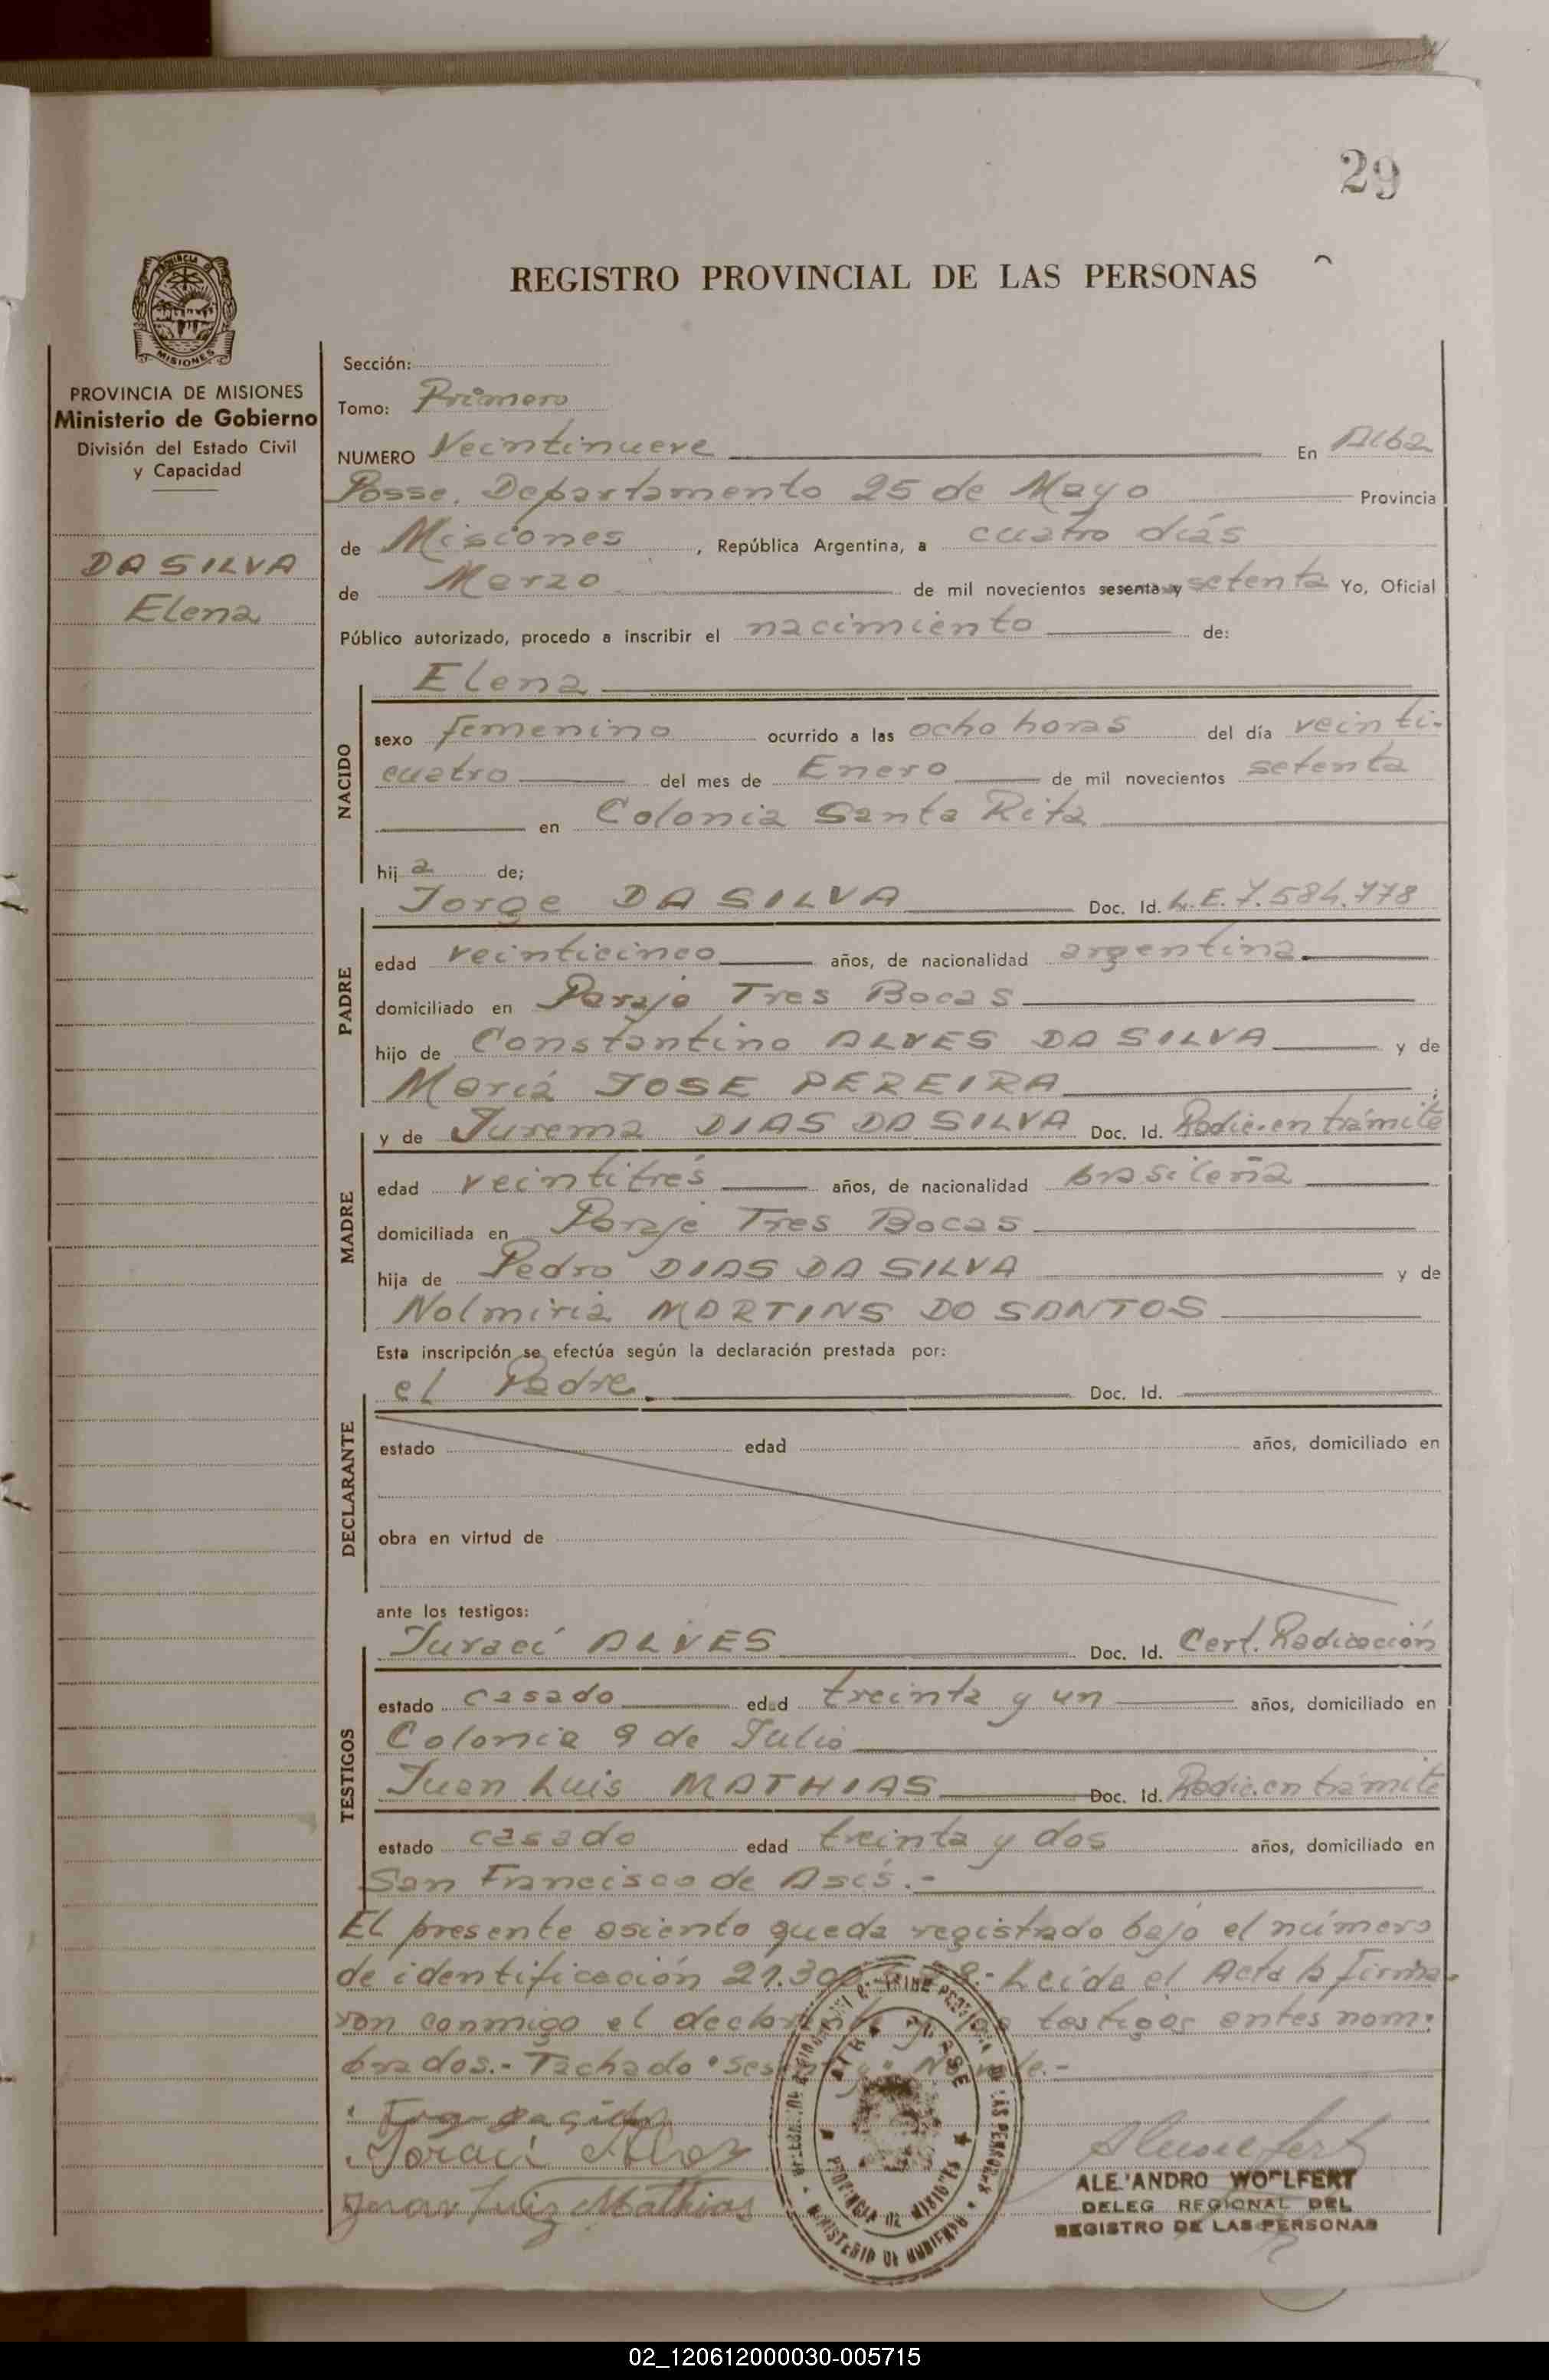 29
REGISTRO PROVINCIAL DE LAS PERSONAS
PROVINCIA DE MISIONES
Ministerio de Gobierno
División del Estado Civil
y Capacidad
DA SILVA
Elena
Sección:
Tomo: Primero
NUMERO Veintinueve En Alba
Posse, Departamento 25 de Mayo Provincia
de Misiones, República Argentina, a cuatro días
de Marzo de mil novecientos sesenta y setenta Yo, Oficial
Público autorizado, procedo a inscribir el nacimiento de:
NACIDO
Elena
sexo femenino ocurrido a las ocho horas del día veinti-
cuatro del mes de Enero de mil novecientos setenta
en Colonia Santa Rita
hija de;
PADRE
Jorge DA SILVA Doc. Id. L.E. 7.584.778
edad veinticinco años, de nacionalidad argentina.
domiciliado en Paraje Tres Bocas
hijo de Constantino ALVES DA SILVA y de
Mariá JOSE PEREIRA
MADRE
y de Jurema DIAS DA SILVA Doc. Id. Radic. en trámite
edad veintitrés años, de nacionalidad brasileña
domiciliada en Paraje Tres Bocas
hija de Pedro DIAS DA SILVA y de
Nolmiria MARTINS DO SANTOS
Esta inscripción se efectúa según la declaración prestada por:
DECLARANTE
el Padre. Doc. Id.
estado edad años, domiciliado en
obra en virtud de
ante los testigos:
TESTIGOS
Juraci ALVES Doc. Id. Cert. Radicación
estado casado edad treinta y un años, domiciliado en
Colonia 9 de Julio
Juan Luis MATHIAS Doc. Id. Radic. en trámite
estado casado edad treinta y dos años, domiciliado en
San Francisco de Asís.-
El presente asiento queda registrado bajo el número
de identificación 21.30 8.- Leída el Acta la firma-
ron conmigo el declarante y los testigos antes nom-
brados.- Tachado "sesenta y" No vale.-
Joraci Alves
Juan Luiz Mathias
ALEJANDRO WOELFERT
DELEG REGIONAL DEL
REGISTRO DE LAS PERSONAS
02_120612000030-005715